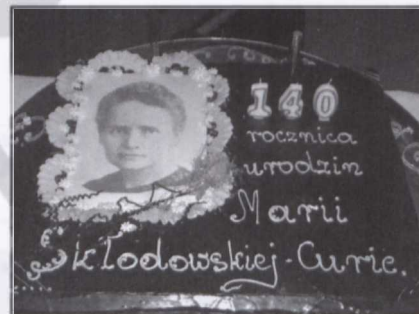 140
rocznica
urodzin
Marii
Skłodowskiej-Curie.